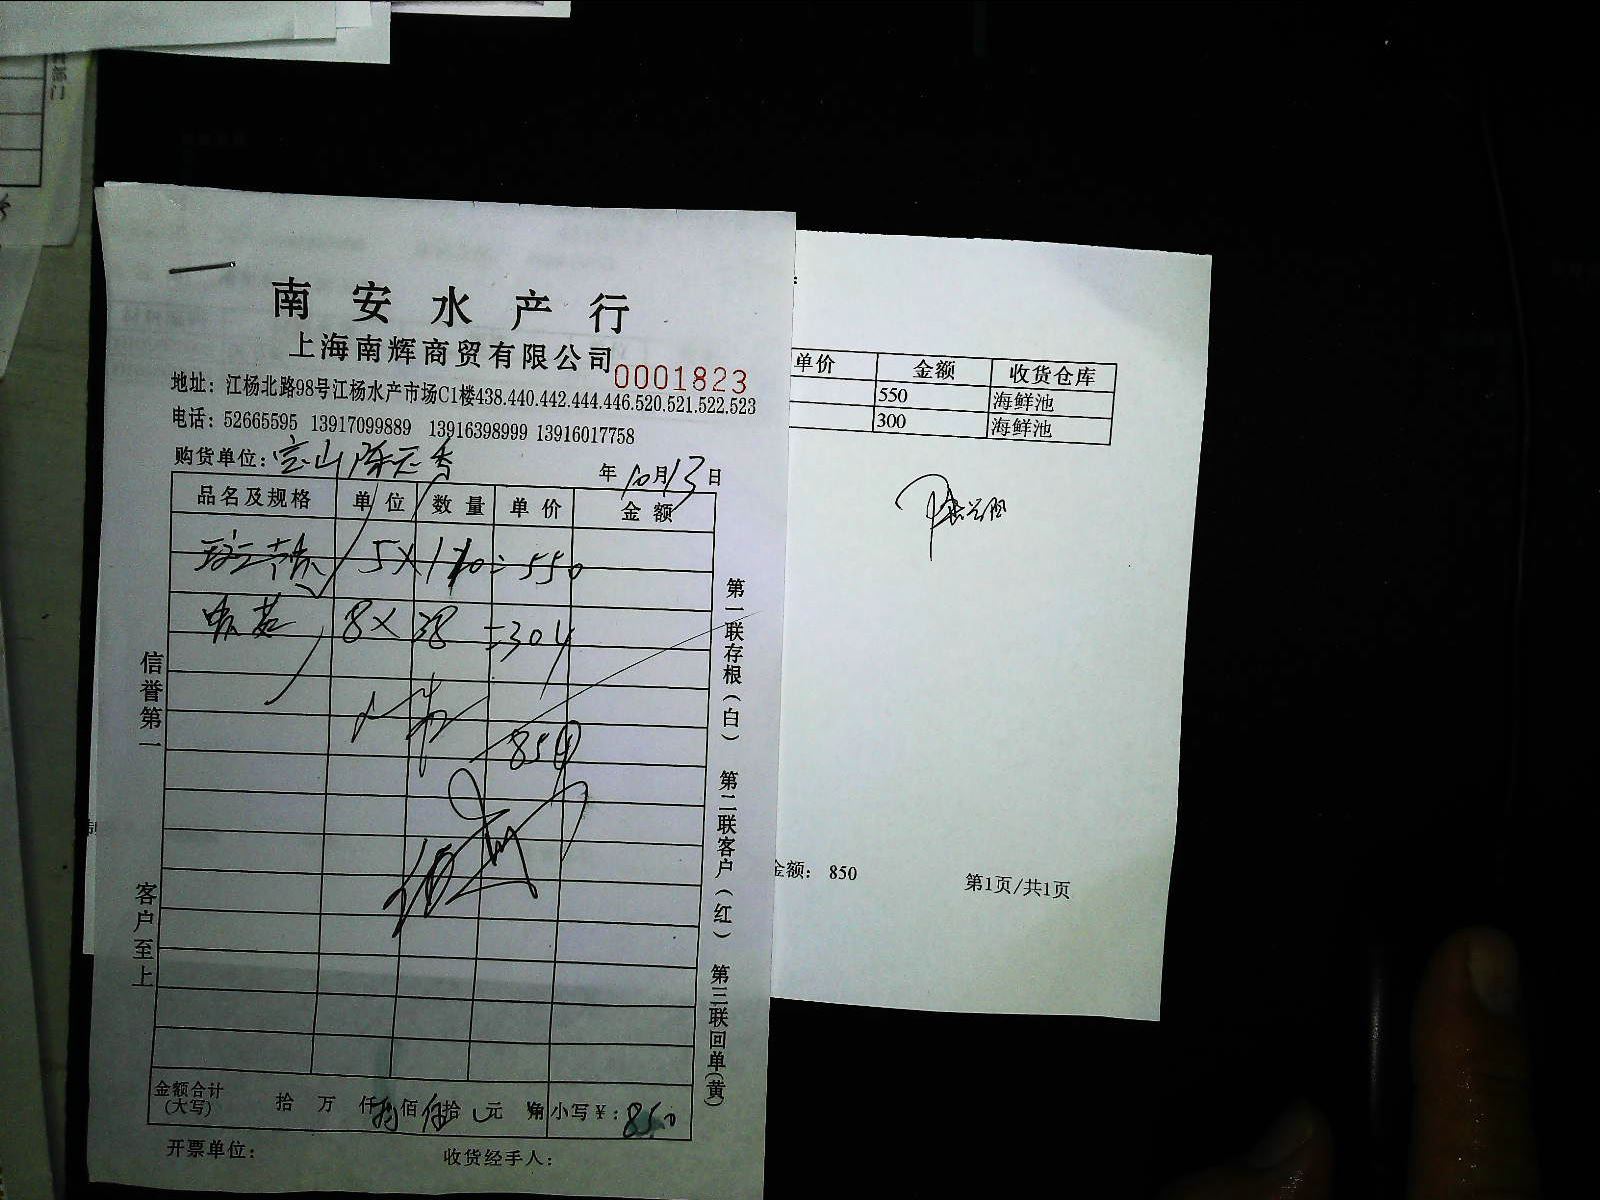 南安水产行
上海南辉商贸有限公司
0001823
地址：江杨北路98号江杨水产市场C1楼438.440.442.444.446.520.521.522.523
电话：52665595 13917099889 13916398999 13916017758
购货单位：宝山陈 香
年10月13日
品名及规格 单位 数量 单价 金额
5×110=550
8×38=304
850
金额合计(大写) 拾 万 仟 捌佰伍拾 元 角 小写￥：850
开票单位： 收货经手人：
信誉第一 客户至上
第一联存根（白） 第二联客户（红） 第三联回单（黄）
单价 金额 收货仓库
550 海鲜池
300 海鲜池
金额： 850
第1页/共1页